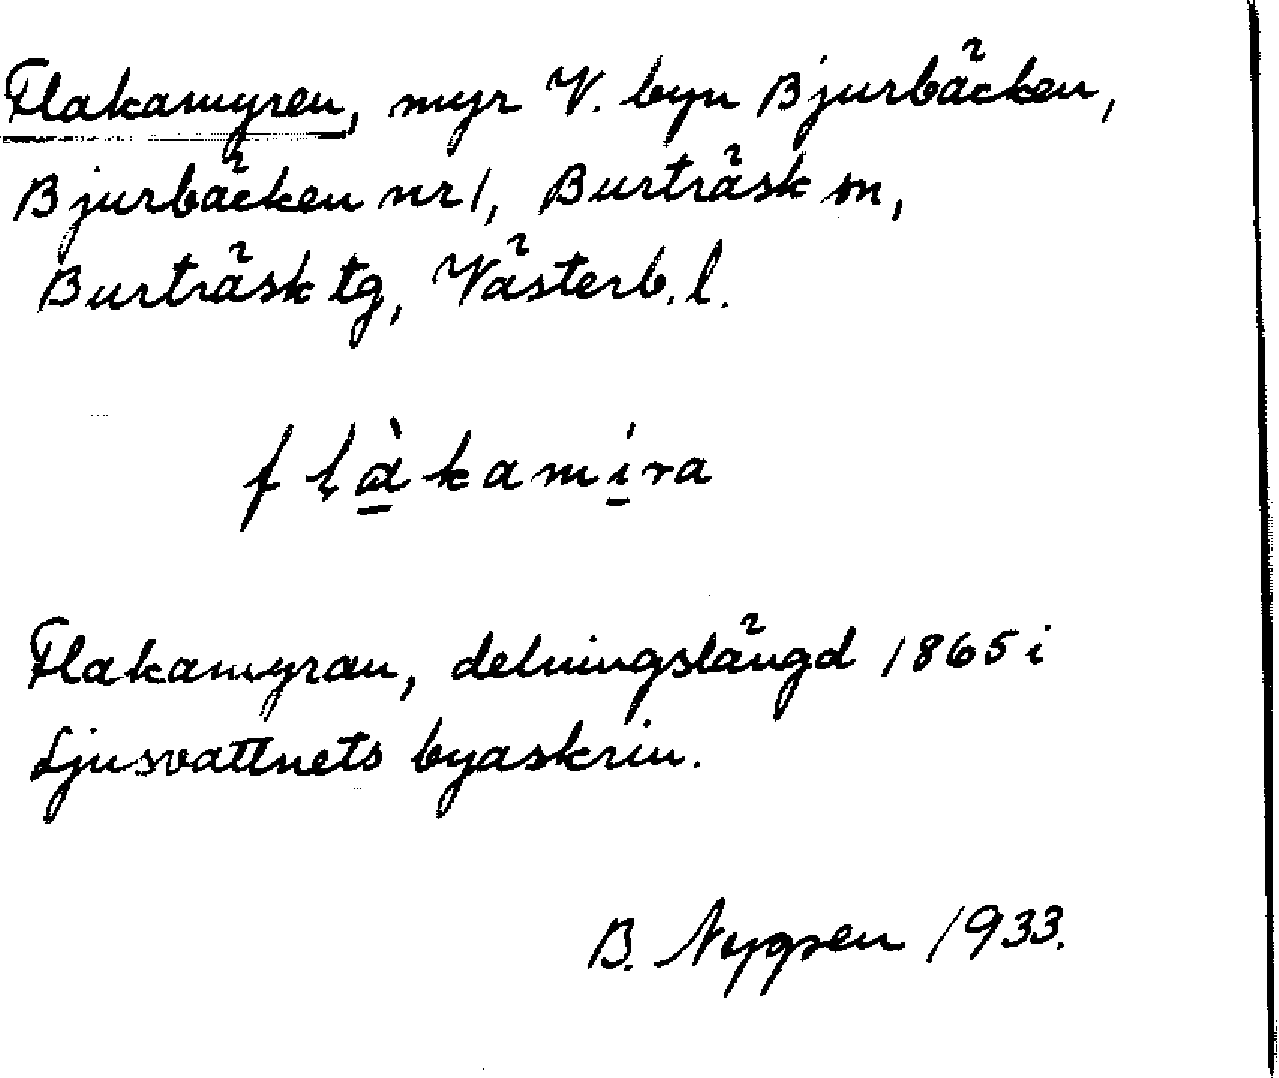 Flakamyren, myr V. byn Bjurbäcken,
Bjurbäcken nr 1, Burträsk sn,
Burträsk tg, Västerb. l.
flàkamíra
Flakamyran, delningslängd 1865 i
Ljusvattnets byaskrin.
B. Nygren 1933.